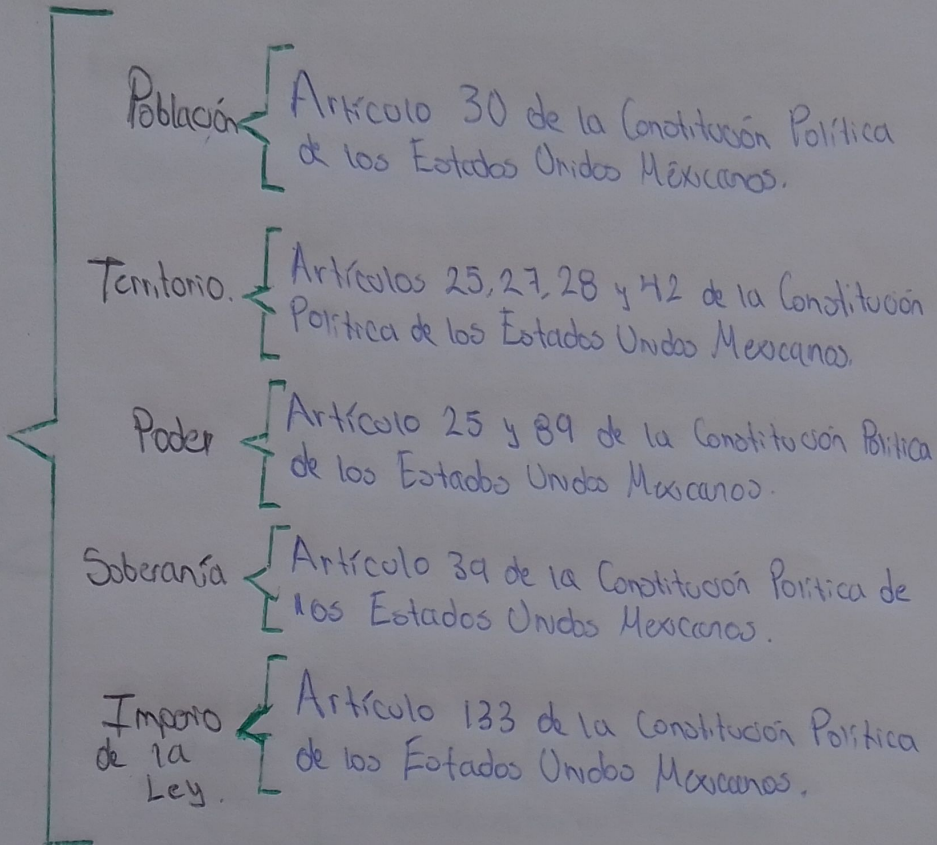 Población
Artícolo 30 de la Constitución Política
de los Estados Unidos Méxicanos.
Territorio.
Artículos 25, 27, 28 y 42 de la Constitución
Política de los Estados Unidos Mexicanos.
Poder
Artículo 25 y 89 de la Constitución Política
de los Estados Unidos Mexicanos.
Soberanía
Artículo 39 de la Constitución Política de
los Estados Unidos Mexicanos.
Imperio
de la
Ley.
Artículo 133 de la Constitución Política
de los Estados Unidos Mexicanos.